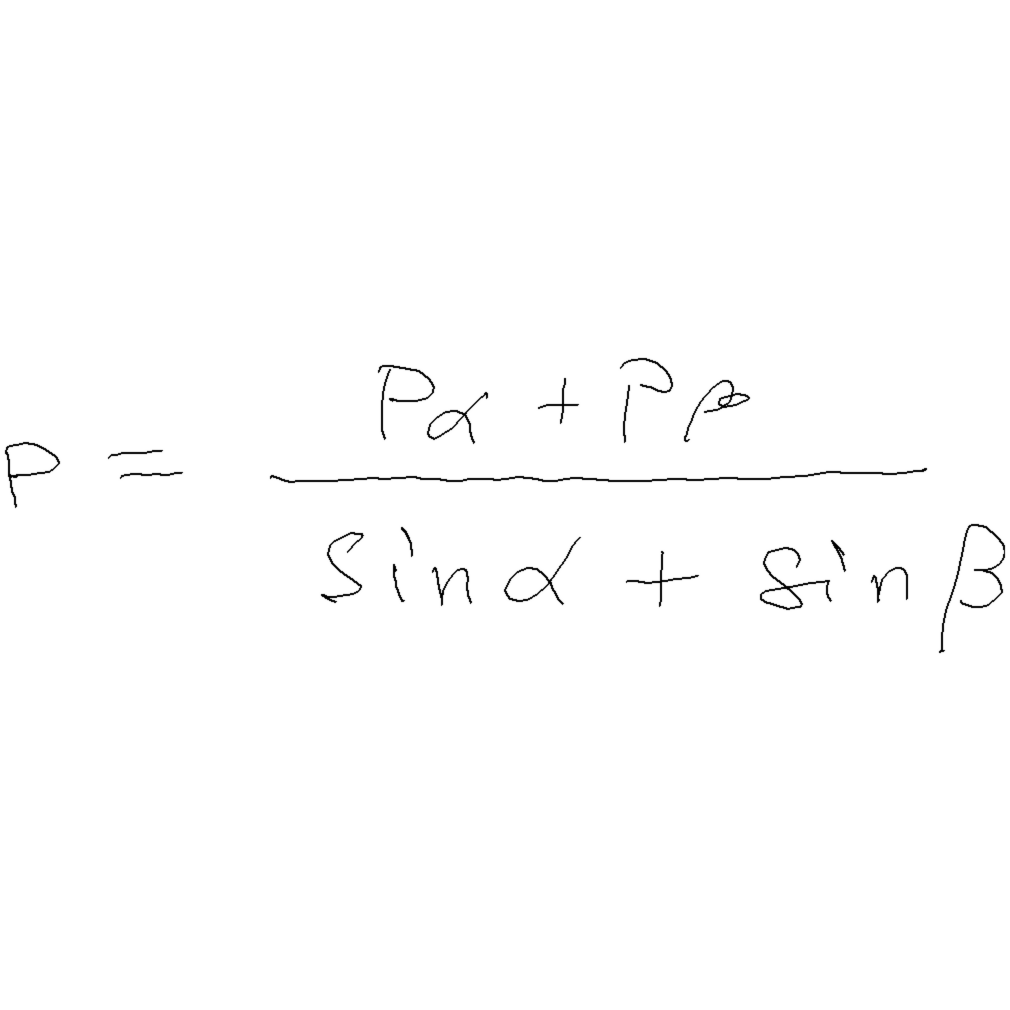 P = \frac{P_{\alpha} + P_{\beta}}{\sin \alpha + \sin \beta}